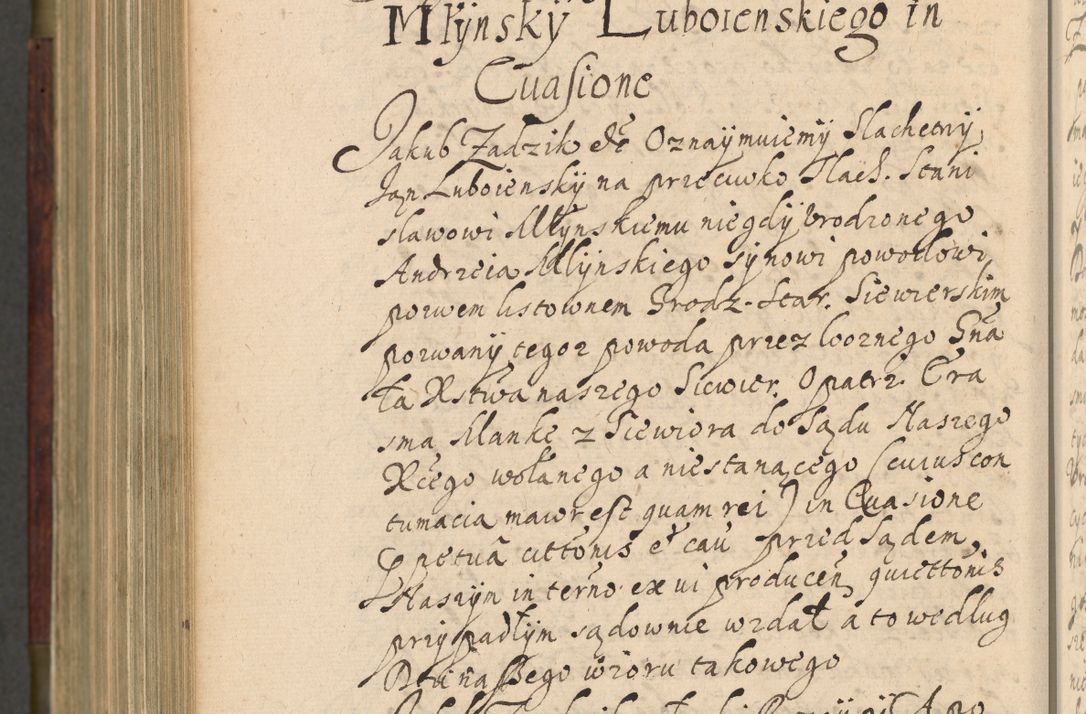 Młÿnskÿ Luboienskiego in
Euasione
Jakub Zadzik etc Oznaÿmuiemÿ Slachetnÿ
Jan Luboienskÿ na przeciwko Slach. Stani
sławowi Młÿnskiemu niegdÿ Vrodzonego
Andrzeia Młÿnskiego Sÿnowi powodowi
pozwem listownem Grodz. Star. Siewierskim
pozwanÿ tegoz powoda przez woznego Gna
ła Xstwa naszego Siewier. Opatrz. Era
sma Manke z Siewiora do Sądu Naszego
Xcego wołanego a niestanącego (cuius con
tumacia maior est quam rei) in Euasione
ppetuã cittonis et cau przed Sądem
Naszÿm in terno ex ui producen quiettonis
przÿpadłÿm sądownie wzdał a to według
naszego wzoru takowego